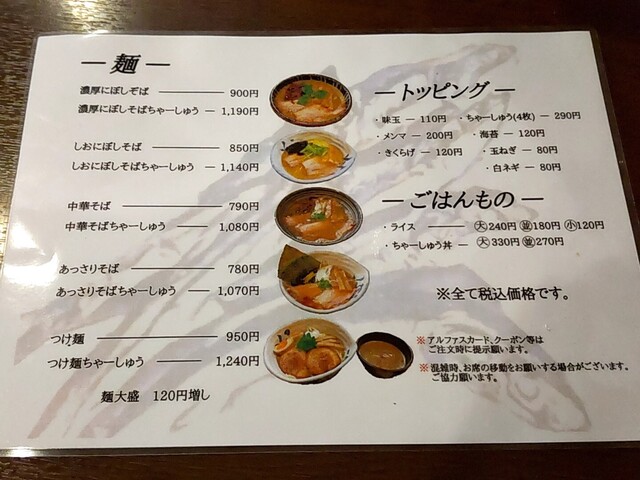 ― 麺 ―
濃厚にぼしそば ――― 900円
濃厚にぼしそばちゃーしゅう ― 1,190円
しおにぼしそば ――― 850円
しおにぼしそばちゃーしゅう ― 1,140円
中華そば ――― 790円
中華そばちゃーしゅう ― 1,080円
あっさりそば ――― 780円
あっさりそばちゃーしゅう ― 1,070円
つけ麺 ――― 950円
つけ麺ちゃーしゅう ― 1,240円
麺大盛 120円増し
― トッピング ―
・味玉 ― 110円 ・ちゃーしゅう(4枚) ― 290円
・メンマ ― 200円 ・海苔 ― 120円
・きくらげ ― 120円 ・玉ねぎ ― 80円
・白ネギ ― 80円
― ごはんもの ―
・ライス ― 大240円 並180円 小120円
・ちゃーしゅう丼 ― 大330円 並270円
※全て税込価格です。
※アルファスカード、クーポン等は
ご注文時に提示願います。
※混雑時、お席の移動をお願いする場合がございます。
ご協力願います。